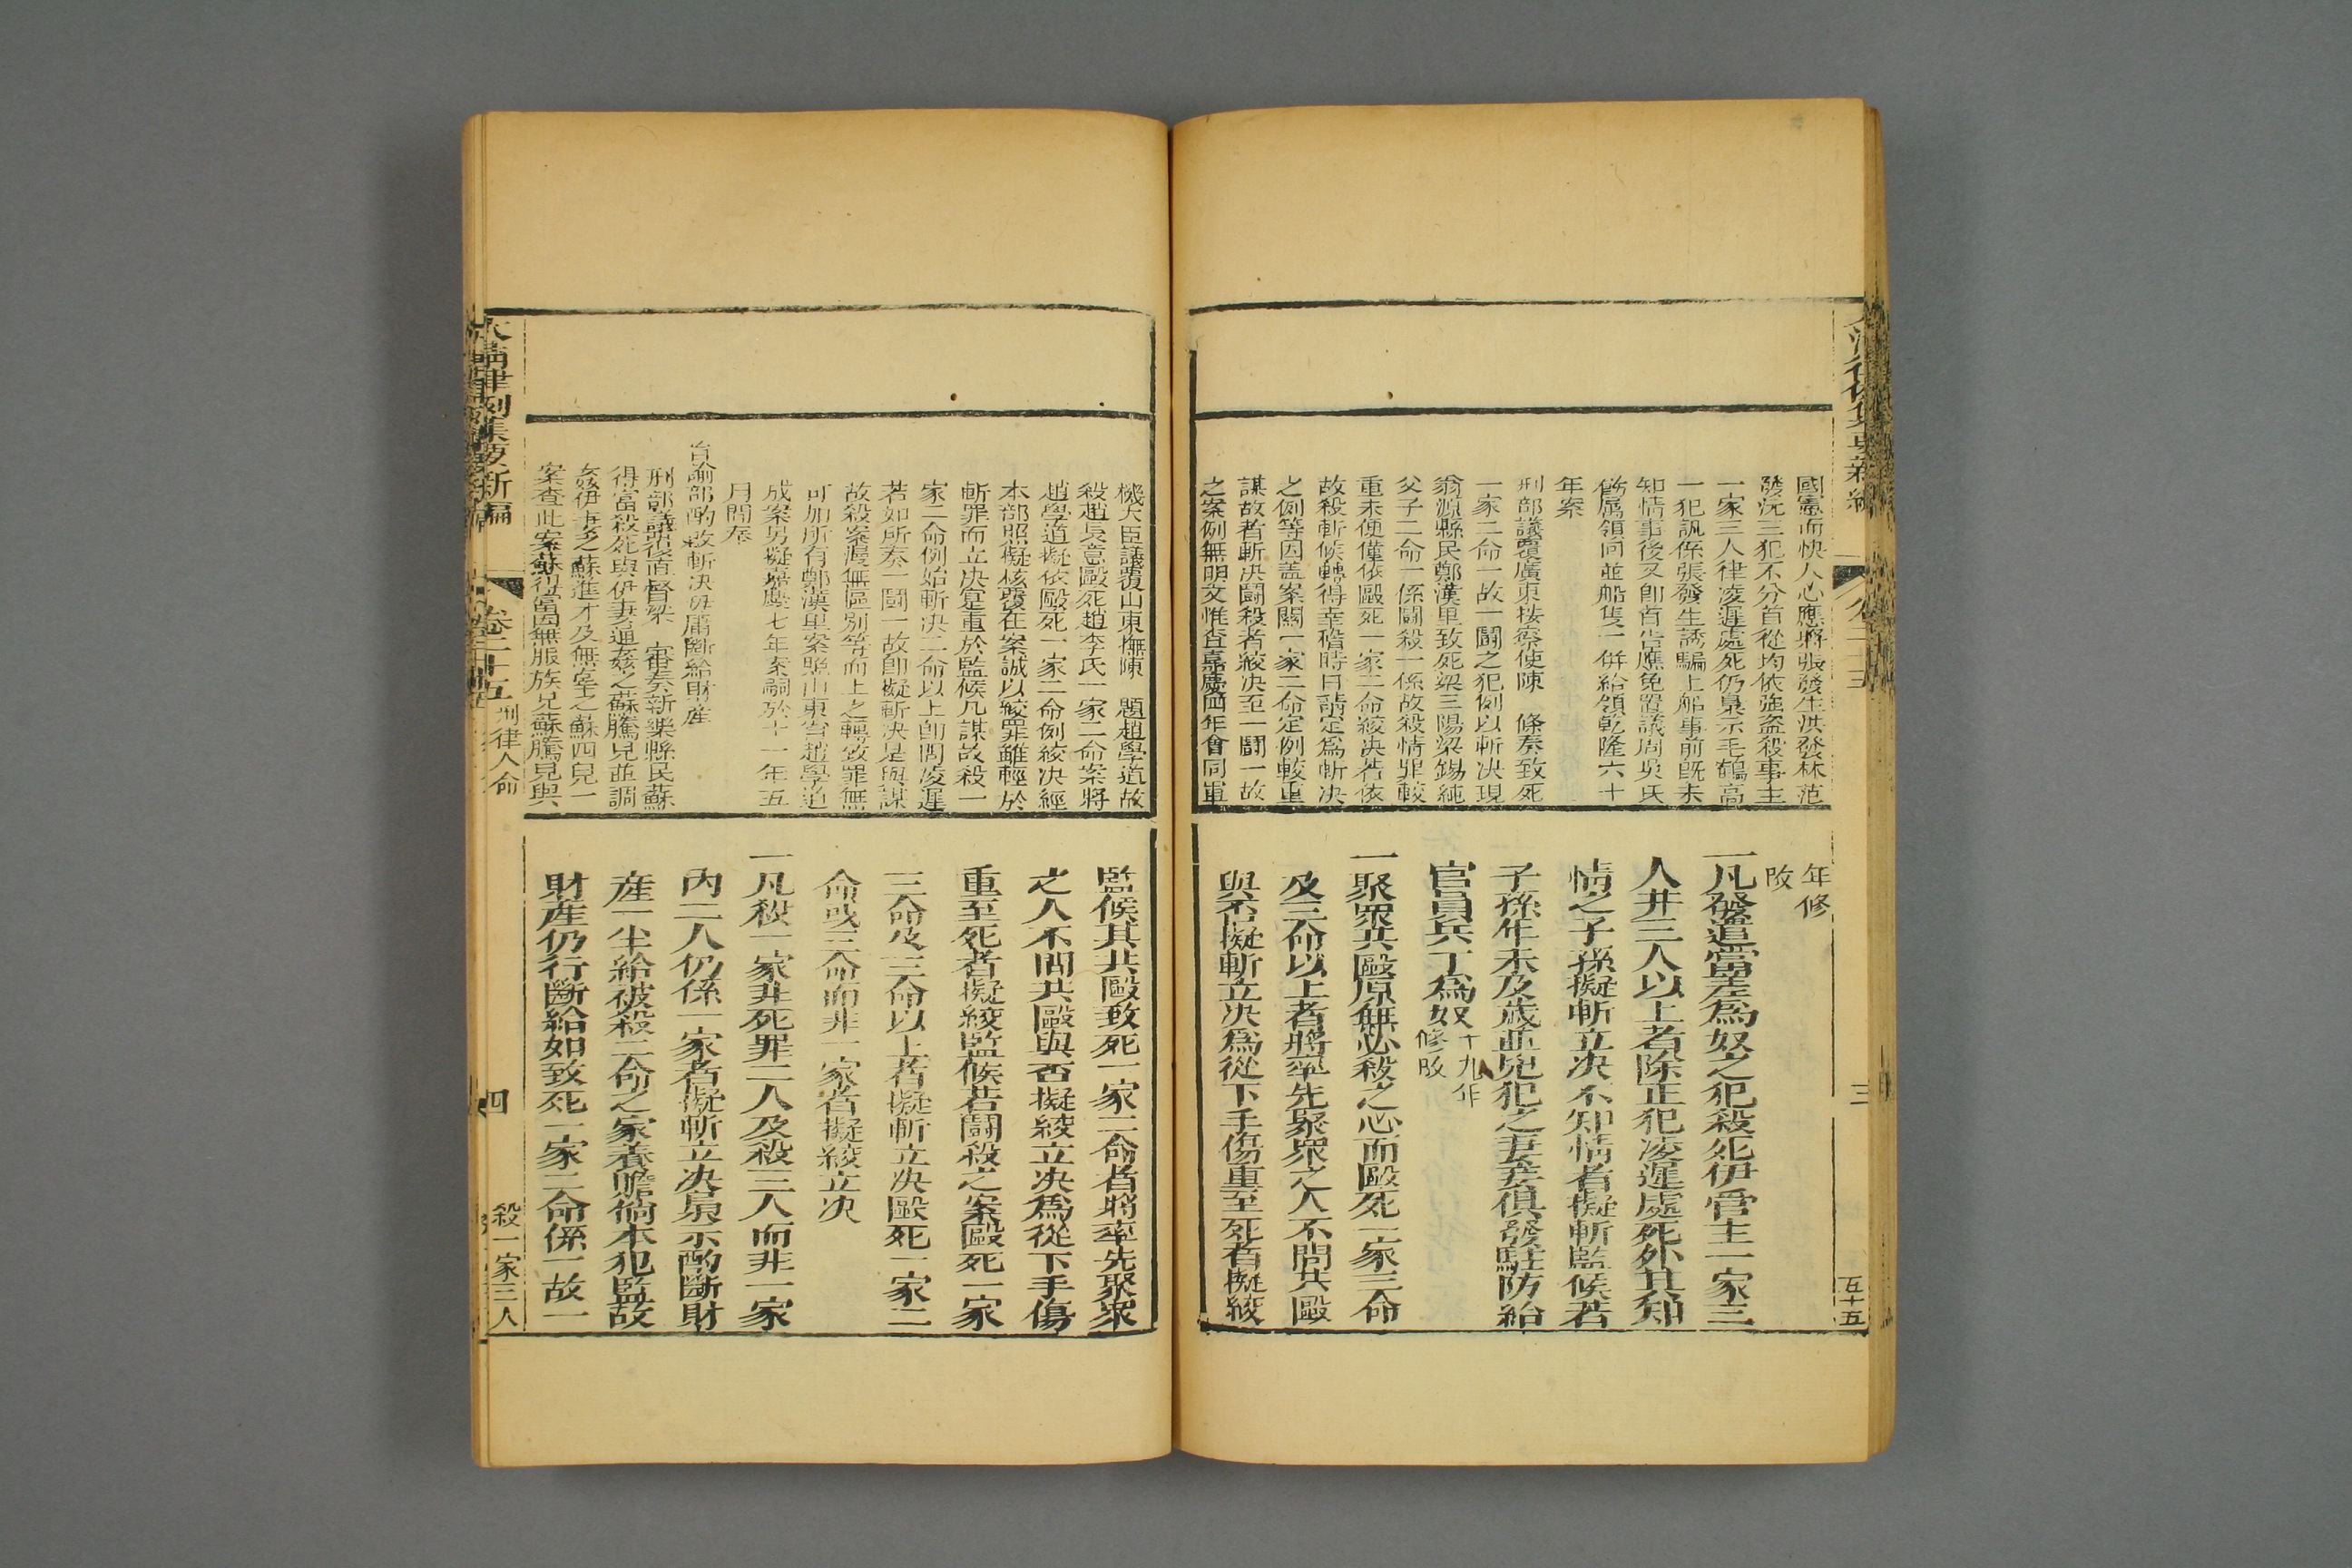 國憲而快人心應將張發生洪發林范
發沅三犯不分首從均依強盜殺事主
一家三人律凌遲處死仍梟示毛鶴高
一犯訊係張發生誘騙上船事前既未
知情事後又卽首告應免置議周吳氏
飭屬領回並船隻一併給領乾隆六十
年案
刑部議覆廣東按察使陳 條奏致死
一家二命一故一鬭之犯例以斬決現
翁源縣民鄭漢里致死梁三陽梁錫純
父子二命一係鬭殺一係故殺情罪較
重未便僅依毆死一家二命絞決若依
故殺斬候轉得幸稽時日請定爲斬決
之例等因蓋案關一家二命定例較重
謀故者斬決鬭殺者絞決至一鬭一故
之案例無明文惟查嘉慶四年會同軍
年修
改
一凡發遣當差爲奴之犯殺死伊管主一家三
人并三人以上者除正犯凌遲處死外其知
情之子孫擬斬立決不知情者擬斬監候若
子孫年未及歲並兇犯之妻妾俱發駐防給
官員兵丁爲奴十九年修改
一聚眾共毆原無必殺之心而毆死一家三命
及三命以上者將率先聚眾之人不問共毆
與否擬斬立決爲從下手傷重至死者擬絞
三
五十五
機大臣議覆山東撫陳 題趙學道故
殺趙長意毆死趙李氏一家二命案將
趙學道擬依毆死一家二命例絞決經
本部照擬核覆在案誠以絞罪雖輕於
斬罪而立決寔重於監候凡謀故殺一
家二命例始斬決二命以上卽問凌遲
若如所奏一鬭一故卽擬斬決是與謀
故殺案漫無區別等而上之轉致罪無
可加所有鄭漢里案照山東省趙學道
成案另擬嘉慶七年案嗣於十一年五
月間奉
旨諭部酌改斬決毋庸斷給財産
刑部議覆直督梁 審奏新樂縣民蘇
得富殺死與伊妻通姦之蘇騰兒並調
姦伊妻之蘇進才及無辜之蘇四兒一
案查此案蘇得富因無服族兄蘇騰兒與
監候其共毆致死一家二命者將率先聚眾
之人不問共毆與否擬絞立決爲從下手傷
重至死者擬絞監候若鬭殺之案毆死一家
三命及三命以上者擬斬立決毆死一家二
命或三命而非一家者擬絞立決
一凡殺一家非死罪二人及殺三人而非一家
內二人仍係一家者擬斬立決梟示酌斷財
産一半給被殺二命之家養贍倘本犯監故
財産仍行斷給如致死一家二命係一故一
大清律例集要新編
卷二十五
刑律人命
四
殺一家三人